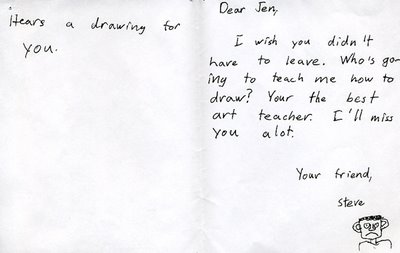 Hears a drawing for
you.
Dear Jen,
I wish you didn't
have to leave. Who's go-
ing to teach me how to
draw? Your the best
art teacher. I'll miss
you alot.
Your friend,
steve